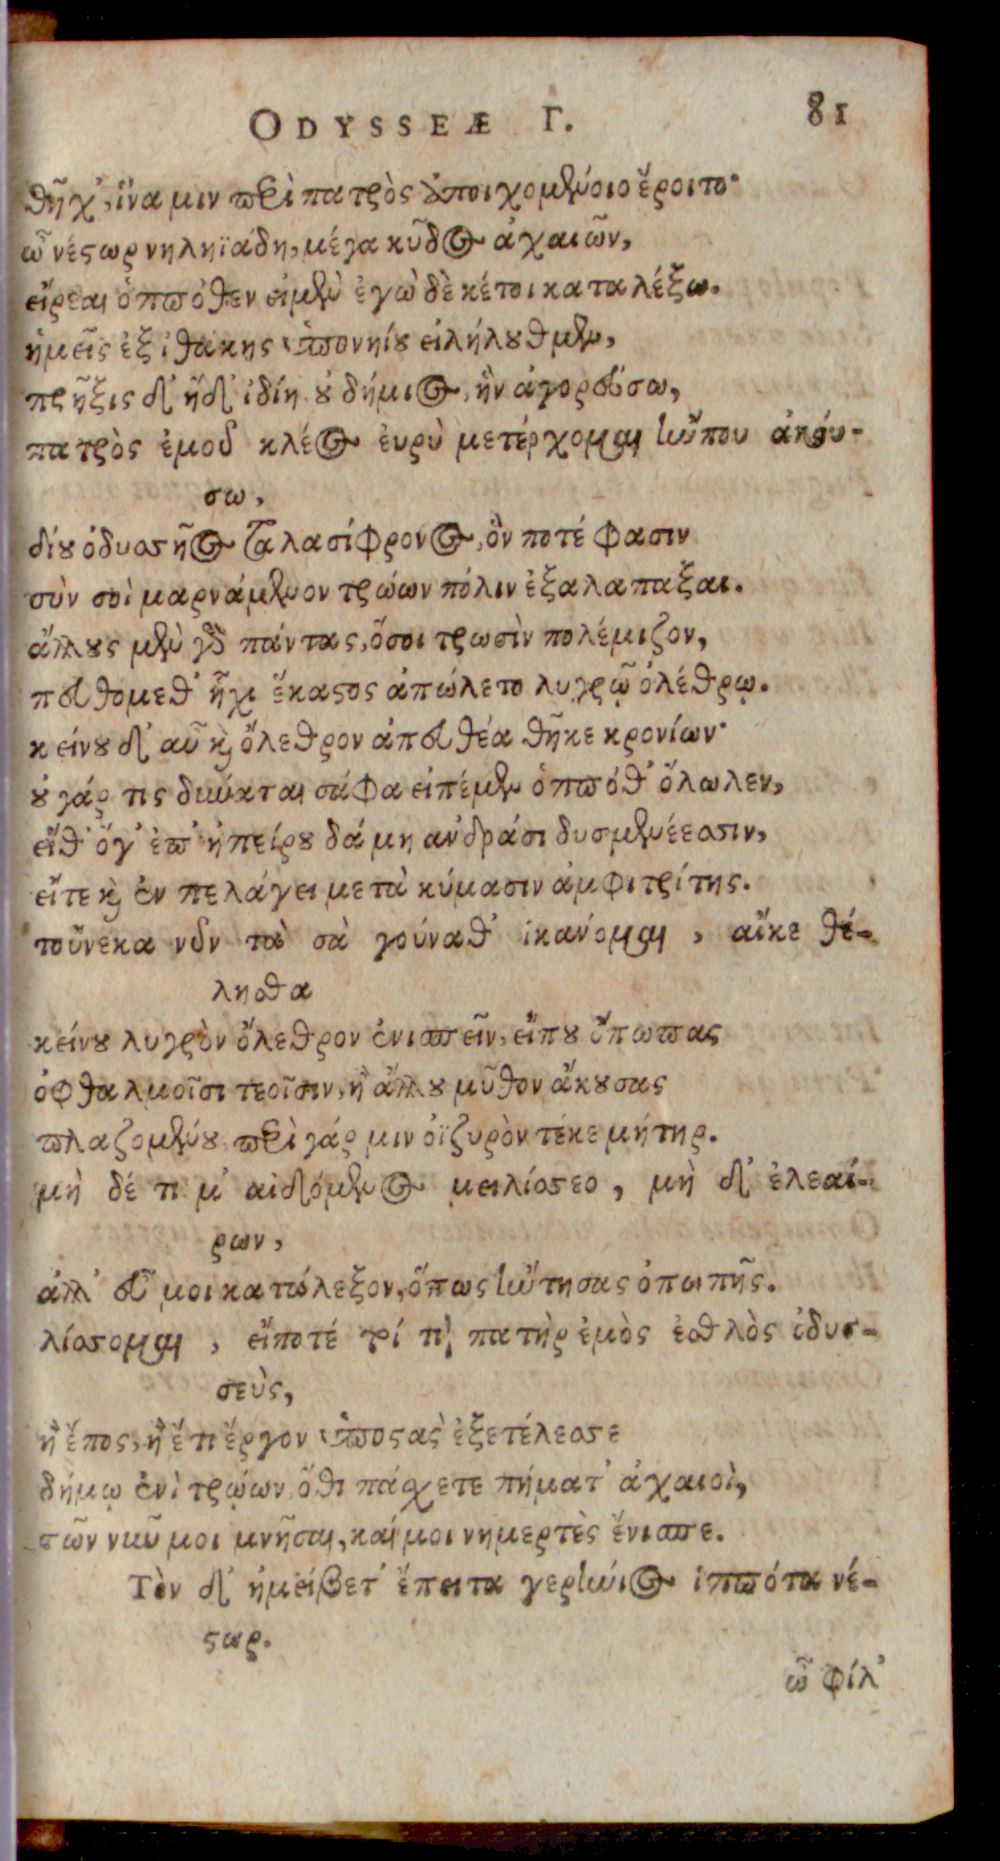 ODYSSEÆ Γ. 81
θῆχ', ἵνα μιν περὶ πατρὸς ἀποιχομένοιο ἔροιτο·
ὦ νέστωρ νηληϊάδη, μέγα κῦδος ἀχαιῶν,
εἴρεαι ὁππόθεν εἰμὲν ἐγὼ δὲ κέτοι καταλέξω.
ἡμεῖς ἐξ ἰθάκης ὑπονηίου εἰλήλουθμεν,
πρῆξις δ' ἥδ' ἰδίη οὐ δήμιος, ἣν ἀγορεύσω,
πατρὸς ἐμοῦ κλέος εὐρὺ μετέρχομαι ἤν που ἀκού-
σω,
δίου ὀδυσσῆος ταλασίφρονος, ὅν ποτέ φασιν
σὺν σοὶ μαρνάμενον τρώων πόλιν ἐξαλαπάξαι.
ἄλλους μὲν γὰρ πάντας, ὅσοι τρωσὶν πολέμιζον,
πευθομεθ' ἧχι ἕκαστος ἀπώλετο λυγρῷ ὀλέθρῳ.
κείνου δ' αὖ καὶ ὄλεθρον ἀπευθέα θῆκε κρονίων·
οὐ γάρ τις δύναται σάφα εἰπέμεν ὁππόθ' ὄλωλεν,
εἴθ' ὅγ' ἐπ' ἠπείρου δάμη ἀνδράσι δυσμενέεσσιν,
εἴτε καὶ ἐν πελάγει μετὰ κύμασιν ἀμφιτρίτης.
τοὔνεκα νῦν τὰ σὰ γούναθ' ἱκάνομαι, αἴκε θέ-
λησθα
κείνου λυγρὸν ὄλεθρον ἐνισπεῖν, εἴπου ὄπωπας
ὀφθαλμοῖσι τεοῖσιν, ἢ ἄλλου μῦθον ἄκουσας
πλαζομένου περὶ γάρ μιν ὀϊζυρὸν τέκε μήτηρ.
μὴ δέ τι μ' αἰδόμενος μειλίσσεο, μὴ δ' ἐλεαί-
ρων,
ἀλλ' εὖ μοι κατάλεξον, ὅπως ἤντησας ὀπωπῆς.
λίσσομαι, εἴποτέ τοί τι πατὴρ ἐμὸς ἐσθλὸς ὀδυσ-
σεὺς,
ἢ ἔπος, ἠέ τι ἔργον ὑποστὰς ἐξετέλεσσε
δήμῳ ἐνὶ τρώων ὅθι πάσχετε πήματ' ἀχαιοὶ,
τῶν νῦν μοι μνῆσαι, καί μοι νημερτὲς ἔνισπε.
Τὸν δ' ἠμείβετ' ἔπειτα γερήνιος ἱππότα νέ-
στωρ.
ὦ φίλ'